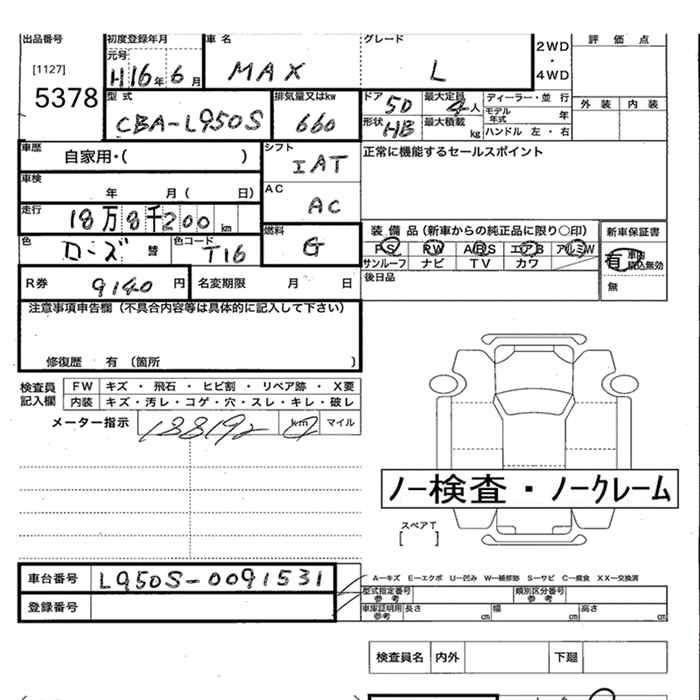 出品番号 初度登録年月 車名 グレード 2WD・4WD 評価点
[1127] 元号 H16年6月 MAX L
5378 型式 CBA-L950S 排気量又はkw 660 ドア 5D 最大定員 4人 ディーラー・並行 外装 内装
形状 HB 最大積載 kg モデル年式 年
ハンドル 左・右
車歴 自家用・( ) シフト IAT 正常に機能するセールスポイント
車検 年 月( 日) AC AC
走行 18万8千200 km 燃料 G 装備品(新車からの純正品に限り○印) 新車保証書
色 ローズ 替 色コード T16 PS PW ABS エアB アルミW 有
サンルーフ ナビ TV カワ 無
R券 9140円 名変期限 月 日 後日品
注意事項申告欄(不具合内容等は具体的に記入して下さい)
修復歴 有 (箇所 )
検査員記入欄 FW キズ・飛石・ヒビ割・リペア跡・X要
内装 キズ・汚レ・コゲ・穴・スレ・キレ・破レ
メーター指示 188192 km マイル
ノー検査・ノークレーム
スペアT
[ ]
車台番号 L950S-0091531 A-キズ E-エクボ U-凹み W-補修跡 S-サビ C-腐食 XX-交換済
登録番号 型式指定番号 参考 類別区分番号 参考
車庫証明用 参考 長さ cm 幅 cm 高さ cm
検査員名 内外 下廻